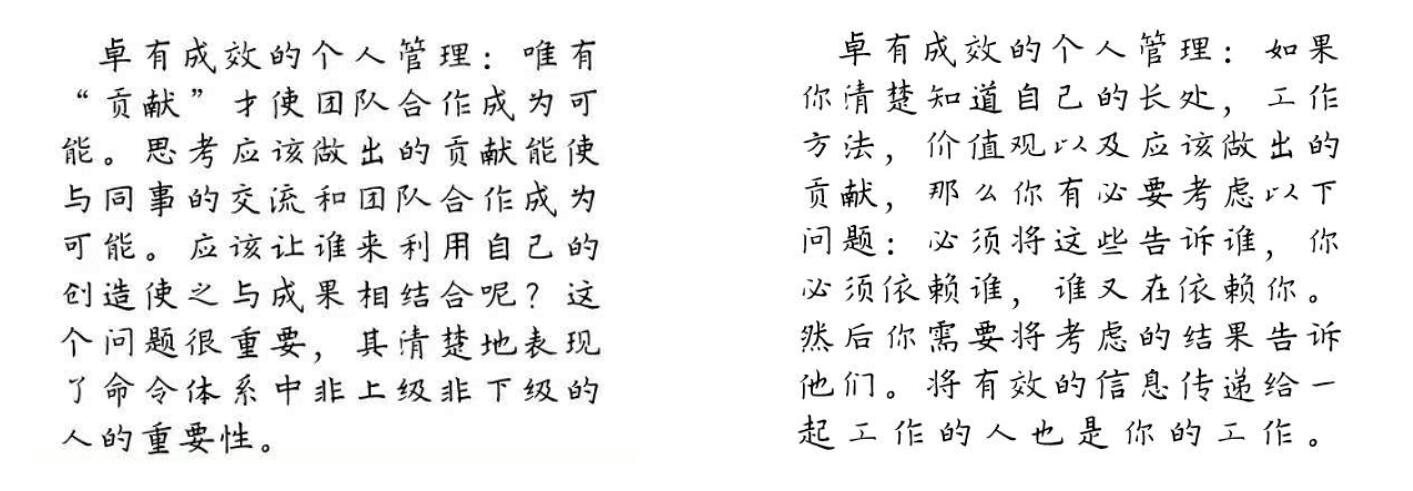 卓有成效的个人管理：唯有
“贡献”才使团队合作成为可
能。思考应该做出的贡献能使
与同事的交流和团队合作成为
可能。应该让谁来利用自己的
创造使之与成果相结合呢？这
个问题很重要，其清楚地表现
了命令体系中非上级非下级的
人的重要性。
卓有成效的个人管理：如果
你清楚知道自己的长处，工作
方法，价值观以及应该做出的
贡献，那么你有必要考虑以下
问题：必须将这些告诉谁，你
必须依赖谁，谁又在依赖你。
然后你需要将考虑的结果告诉
他们。将有效的信息传递给一
起工作的人也是你的工作。